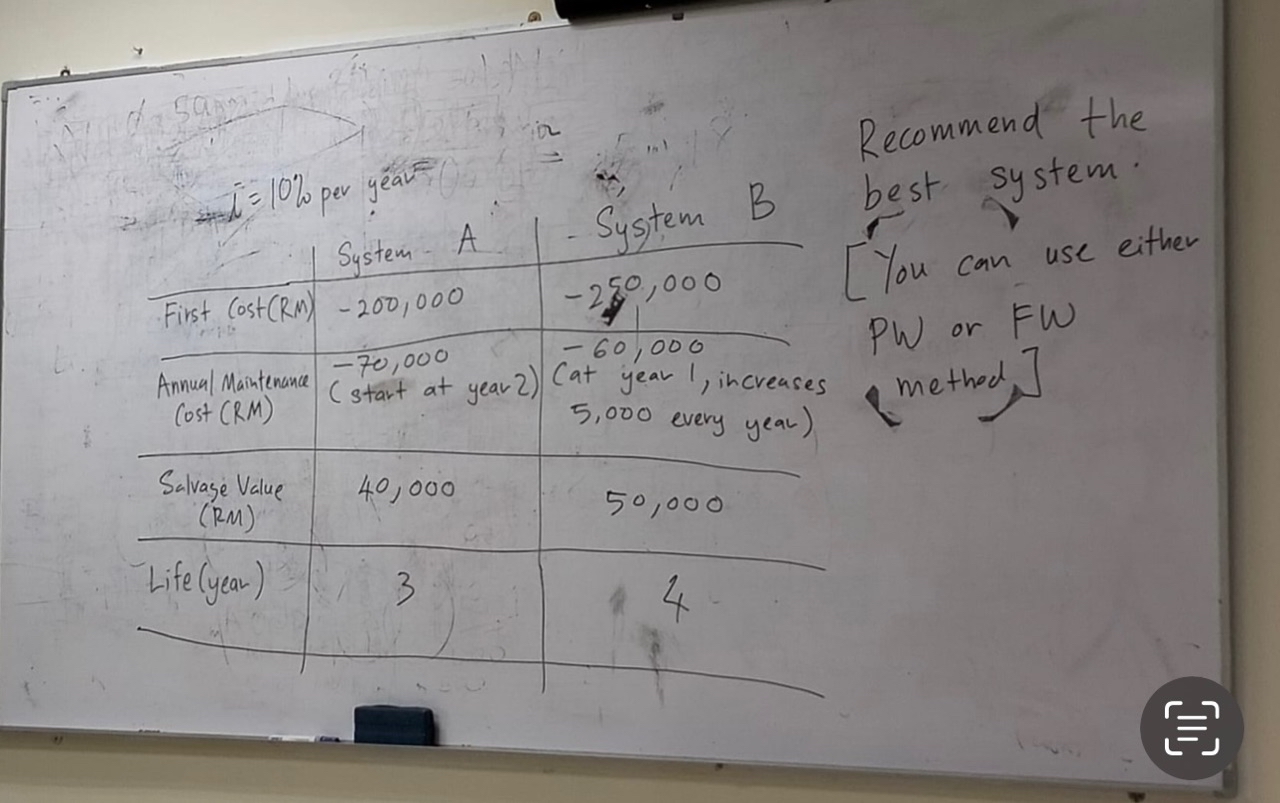 i = 10% per year
System A
System B
First Cost (RM)
-200,000
-250,000
Annual Maintenance
Cost (RM)
-70,000
(start at year 2)
-60,000
(at year 1, increases
5,000 every year)
Salvage Value
(RM)
40,000
50,000
Life (year)
3
4
Recommend the
best system.
[You can use either
PW or FW
method]